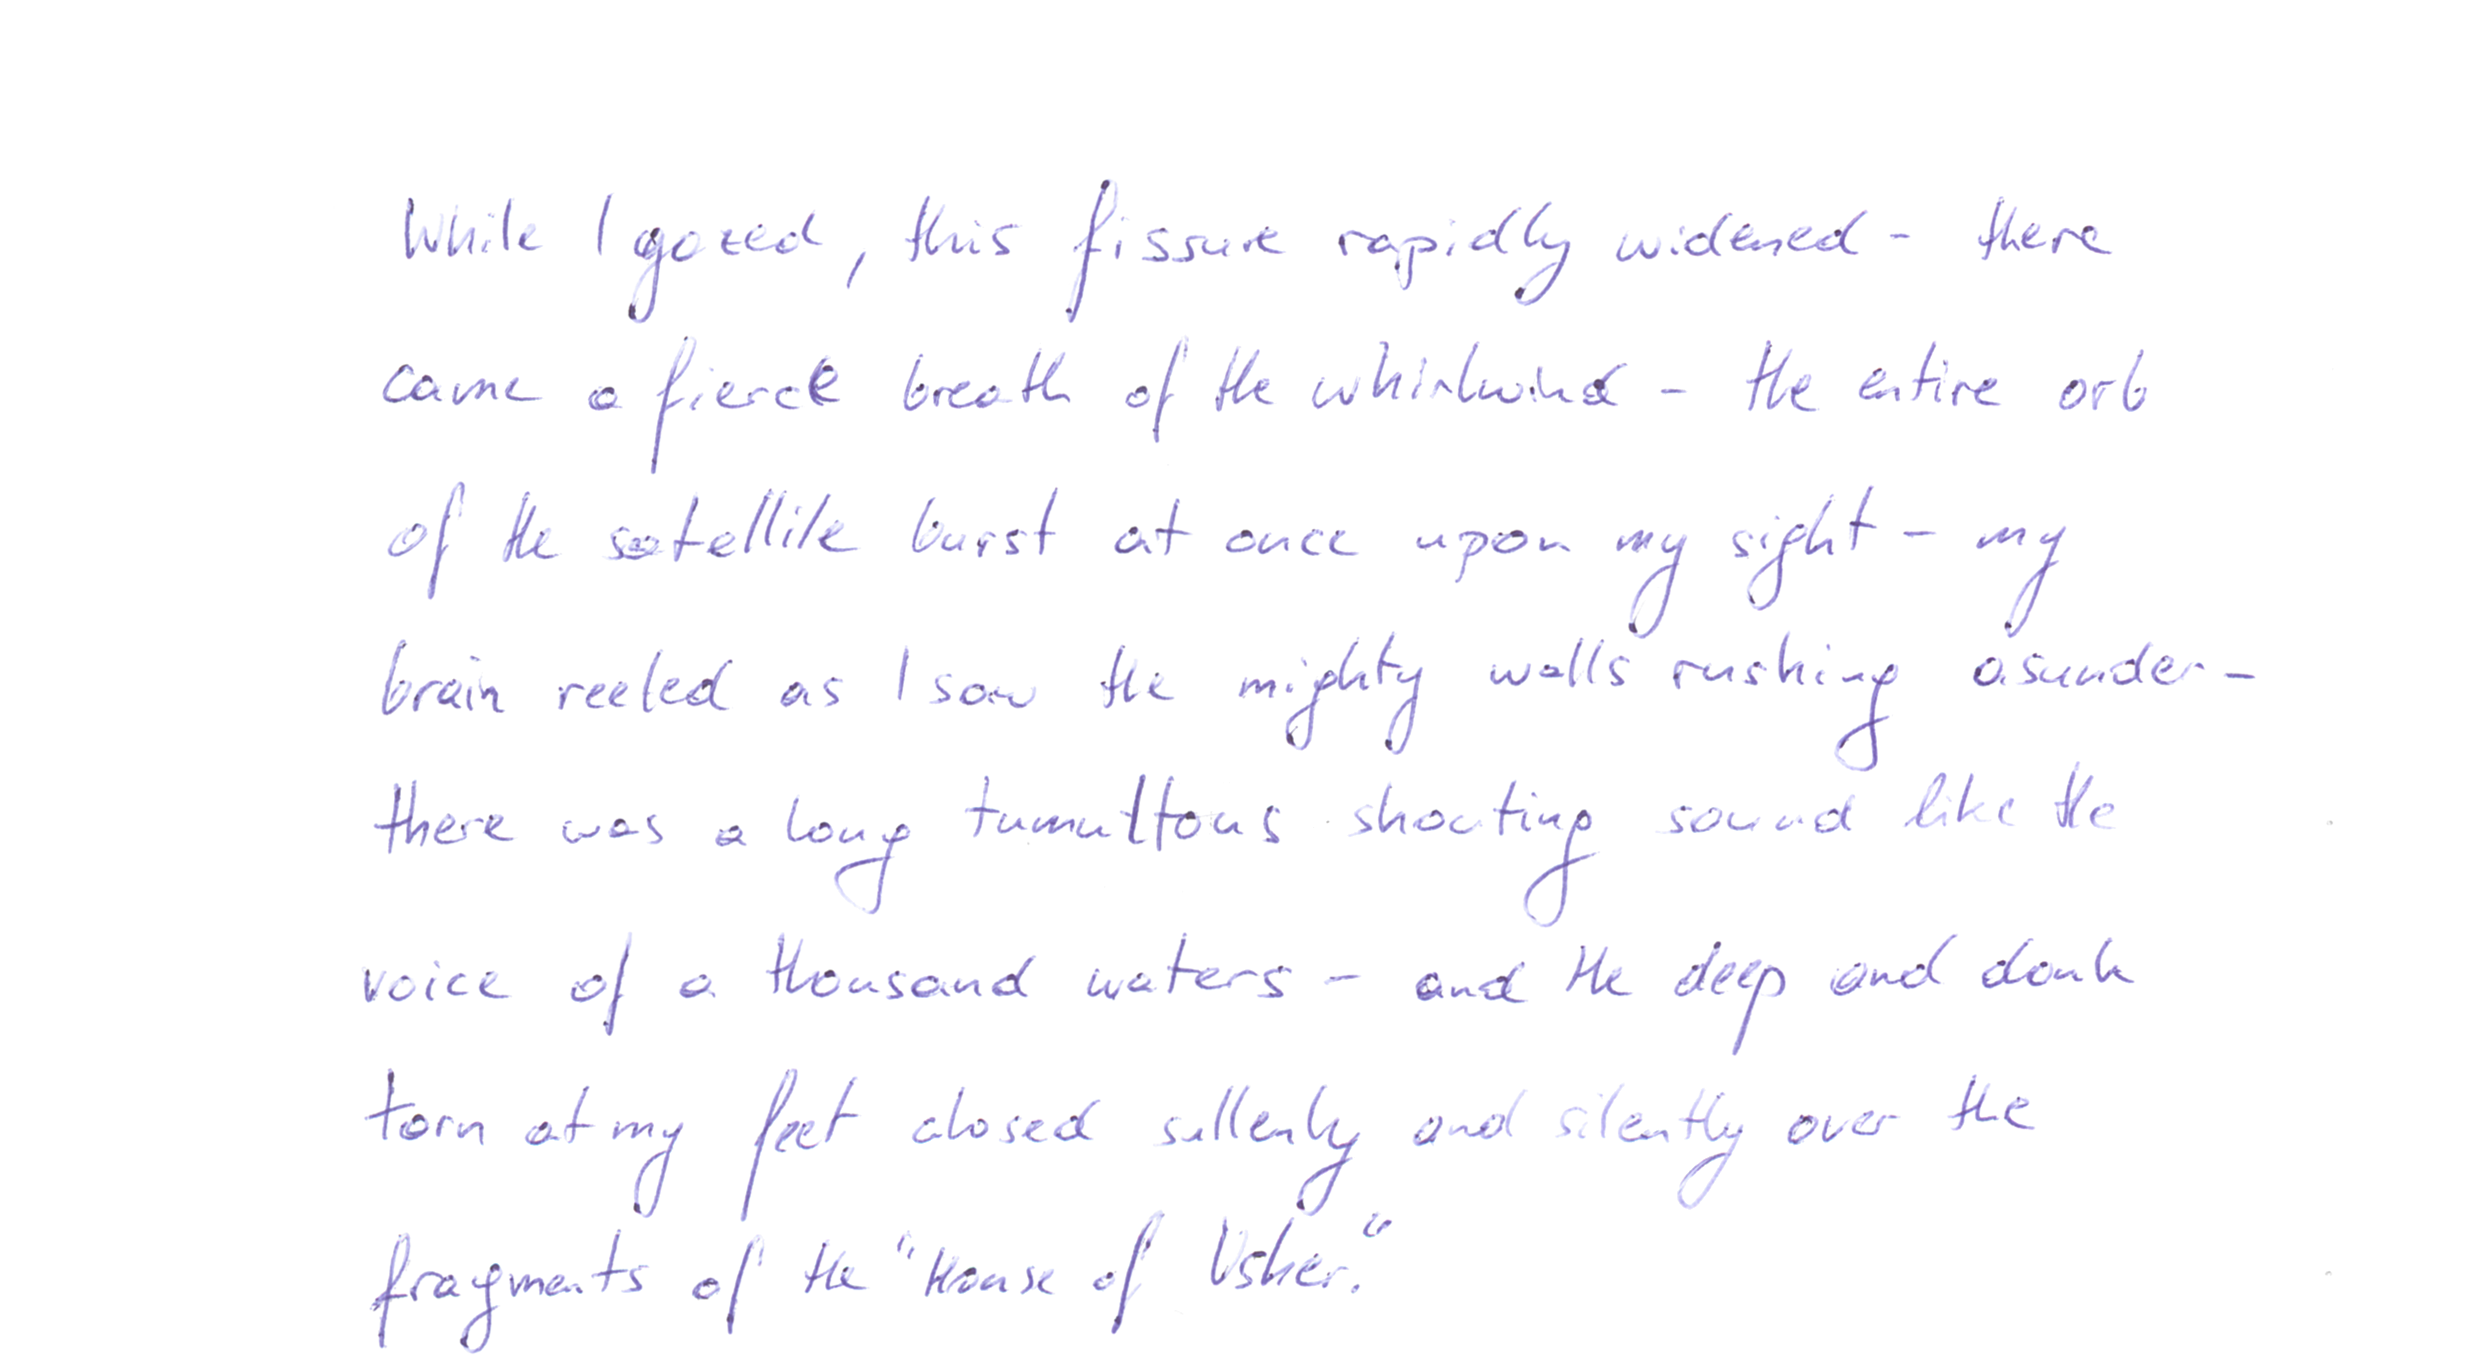 While I gazed, this fissure rapidly widened - there
came a fierce breath of the whirlwind - the entire orb
of the satellite burst at once upon my sight - my
brain reeled as I saw the mighty walls rushing asunder -
there was a long tumultous shouting sound like the
voice of a thousand waters - and the deep and dank
torn at my feet closed sullenly and silently over the
fragments of the "House of Usher."